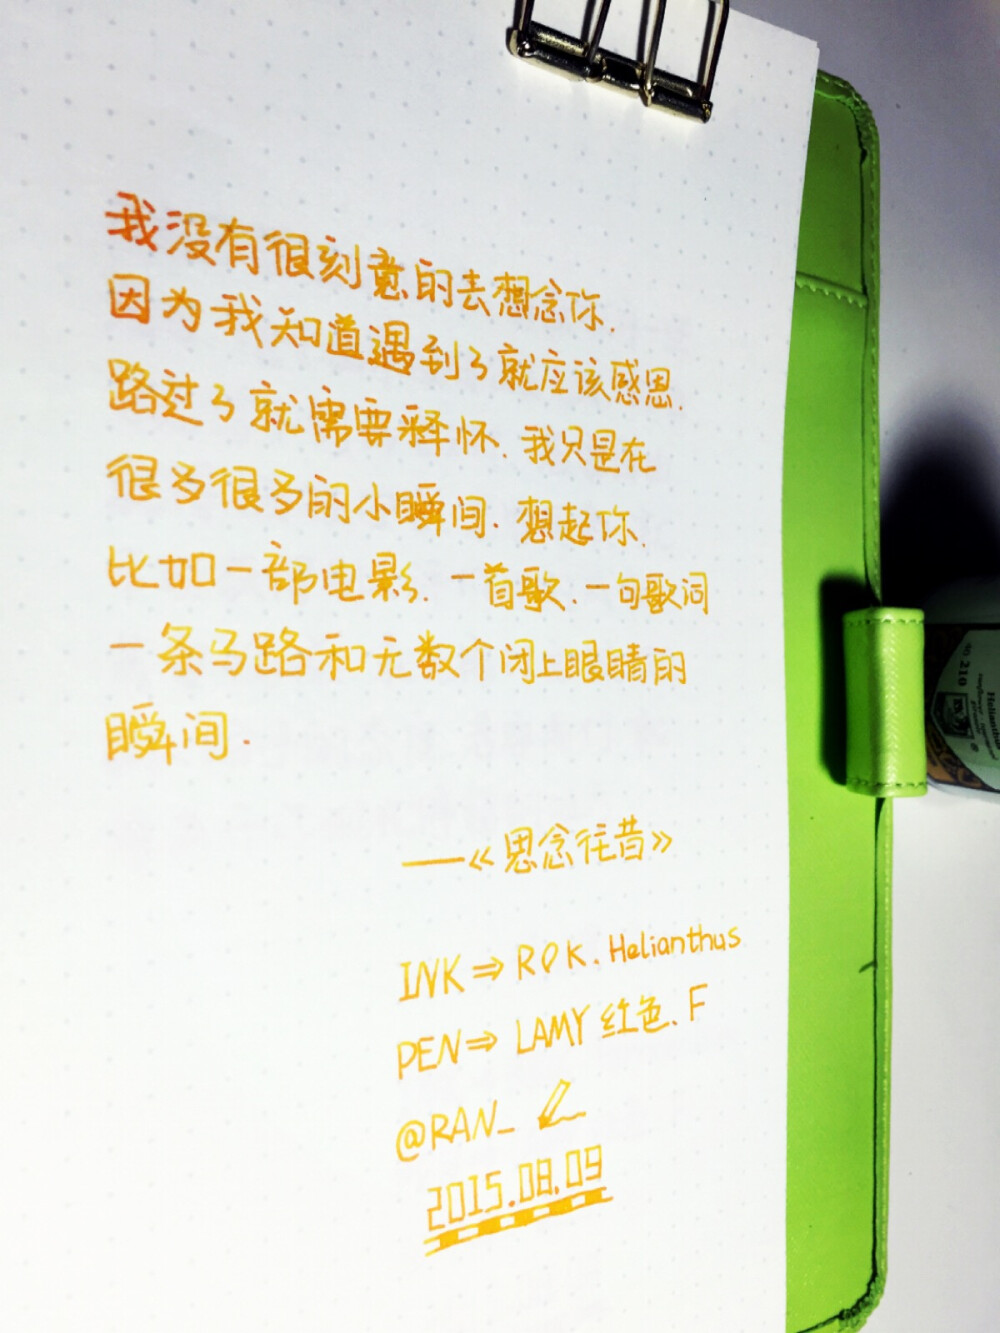 我没有很刻意的去想念你.
因为我知道遇到了就应该感恩.
路过了就需要释怀.我只是在
很多很多的小瞬间.想起你.
比如一部电影.一首歌.一句歌词
一条马路和无数个闭上眼睛的
瞬间.
——《思念往昔》
INK⇒ROK.Helianthus
PEN⇒LAMY 红色.F
@RAN_
2015.08.09
210